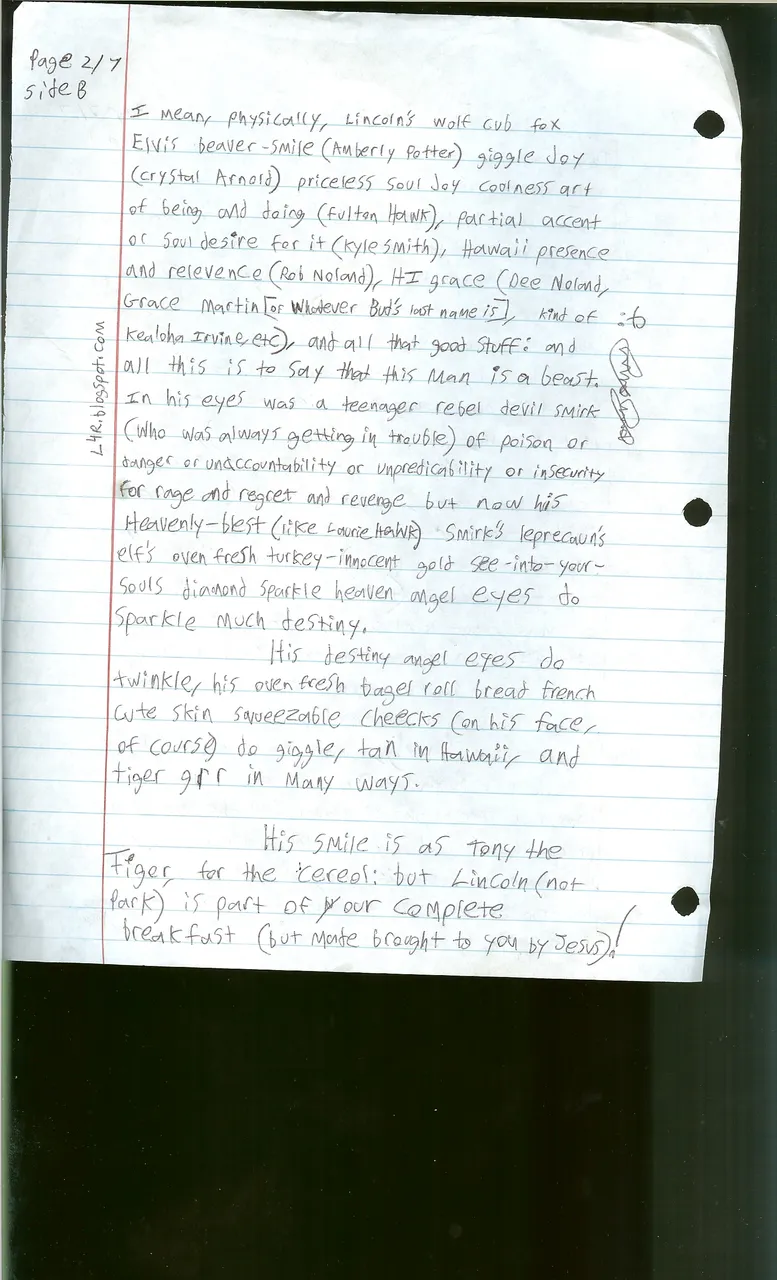 Page 2/7
Side B
I mean, physically, Lincoln's wolf cub fox
Elvis beaver-smile (Amberly Potter) giggle Joy
(crystal Arnold) priceless soul Joy coolness art
of being and doing (Fulton Hawk), partial accent
or soul desire for it (Kyle Smith), Hawaii presence
and relevence (Rob Noland), HI grace (Dee Noland,
Grace Martin [or whatever Bud's last name is], kind of :6
Kealoha Irvine, etc), and all that good stuff: and
all this is to say that this man is a beast.
In his eyes was a teenager rebel devil smirk
(who was always getting in trouble) of poison or
danger or unaccountability or unpredicability or insecurity
for rage and regret and revenge but now his
Heavenly-blest (like Laurie Hawk) smirk's leprecaun's
elf's oven fresh turkey-innocent gold see-into-your-
souls diamond sparkle heaven angel eyes do
sparkle much destiny.
His destiny angel eyes do
twinkle, his oven fresh bagel roll bread french
cute skin squeezable cheecks (on his face,
of course) do giggle, tan in Hawaii, and
tiger grr in many ways.
His smile is as Tony the
Tiger, for the cereal: but Lincoln (not
Park) is part of your complete
breakfast (but made brought to you by Jesus)!
L4R.blogspot.com